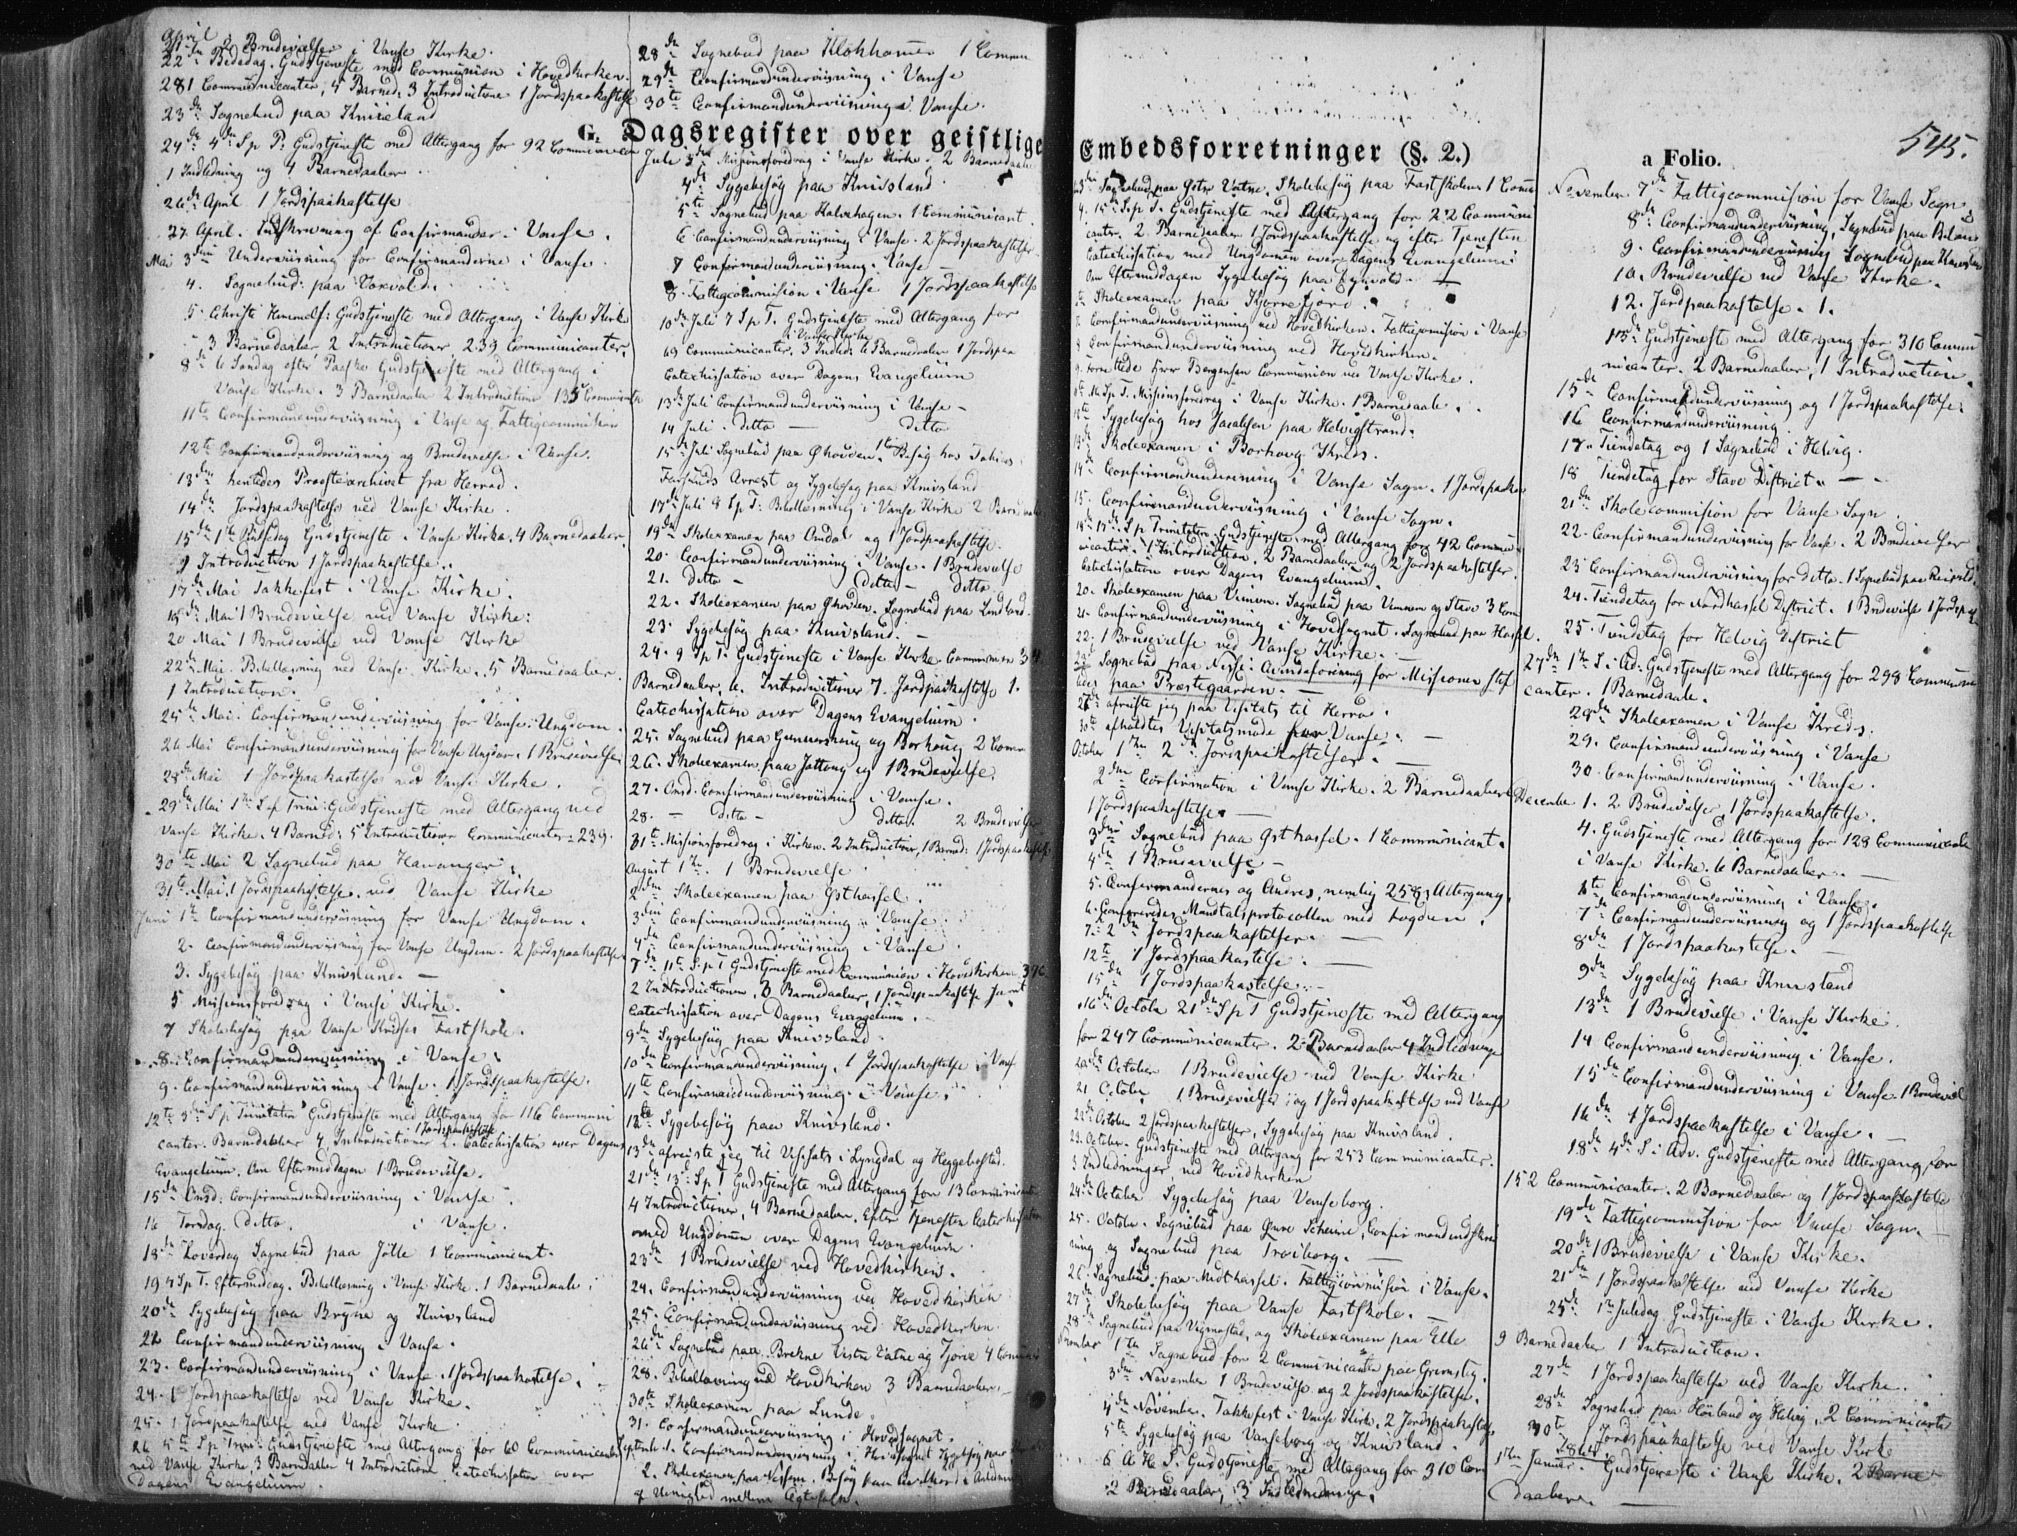 April
21de 2 Brudevielser i Vanse Kirke.
22de Bededag. Gudstjeneste med Communion i Hovedkirken.
281 Communicanter, 4 Barned. 3 Introductione 1 Jordspaakastelse
23de Sognebud paa Knivsland
24de 4de S p P. Gudstjeneste med Altergang for 92 Communican
1 Indledning og 4 Barnedaaber
26de April 1 Jordspaakastelse
27 April. Indskrivning af Confirmander i Vanse.
Mai 3die Underviisning for Confirmanderne i Vanse
4. Sognebud: paa
5. Christi Himmelf: Gudstjeneste med Altergang i Vanse Kirk
3 Barnedaaber 2 Introductioner 239 Communicanter.
8de 6 Søndag efter Paaske Gudstjeneste med Altergang i
Vanse Kirke. 3 Barnedaaber 2 Introductioner 135 Communicante
11te Confirmandunderviisning i Vanse og Fattigcommission
12te Confirmandunderviisning og Brudevielse i Vanse.
13de hentedes Proostearchivet fra Herrad.
14de Jordspaakastelse ved Vanse Kirke.
15de 1te Pintsedag Gudstjeneste i Vanse Kirke. 4 Barnedaaber
9 Introduction 1 Jordspaakastelse.
17de Mai Takkefest i Vanse Kirke.
18de Mai 1 Brudevielse ved Vanse Kirke:
20 Mai 1 Brudevielse ved Vanse Kirke
22de Mai. Bibellæsning ved Vanse Kirke. 5 Barnedaaber.
1 Introduction.
25de Mai. Confirmandunderviisning for Vanse Ungdom.
26 Mai Confirmandunderviisning for Vanse Ungdom. 1 Brudevielse
28de Mai 1 Jordspaakastelse ved Vanse Kirke.
29de Mai 1te S.e.p Trini: Gudstjeneste med Altergang ved
Vanse Kirke. 4 Barned: 5 Introductioner Communicanter: 239.
30te Mai 2 Sognebud paa Hananger.
31te Mai, 1 Jordspaakastelse. ved Vanse Kirke
Juni 1te Confirmandunderviisning for Vanse Ungdom.
2. Confirmandunderviisning for Vanse Ungdom. 2 Jordspaakastelser
3. Sygebesøg paa Knivsland.
5 Missionsforedrag i Vanse Kirke.
7 Skolebesøg paa Vanse Kredses Fastskole.
8. Confirmandunderviisning i Vanse.
9. Confirmandunderviisning i Vanse. 1 Jordspaakastelse.
12te 2de S p Trinitatis Gudstjeneste med Altergang for 116 Communi
canter. Barnedaaber 4 Introductioner 2. 1 Jordspaakastelse Catechisation over Dagens
Evangelium. Om Eftermiddagen 1 Brudevielse.
15de Onsd: Confirmandunderviisning i Vanse
16 Torsdag. Ditto. i Vanse.
18de Loverdag Sognebud paa Jølle 1 Communicant.
19 4 Sp T. Eftermidag. Bibellæsning i Vanse Kirke. 1 Barnedaab
20de Sygebesøg paa Bryne og Knivsland
22 Confirmandunderviisning i Vanse.
23. Confirmandunderviisning i Vanse. 1 Jordspaakastelse.
24. 1 Jordspaakastelse ved Vanse Kirke.
25. 1 Jordspaakastelse ved Vanse Kirke
26 5te S p Trini. Gudstjeneste med Altergang for 60 Communicanter
ved Vanse Kirke 3 Barnedaaber 4 Introductione Catechisation over
Dagens Evangelium.
28de Sognebud paa Klokhamer 1 Commun
29de Confirmandunderviisning i Vanse
30te Confirmandunderviisning i Vanse.
G. Dagsregister over geistlige
Juli 3die Missionsforedrag i Vanse Kirke. 2 Barnedaaber
4de Sygebesøg paa Knivsland
5te Sognebud paa Kalvehagen. 1 Communicant
6 Confirmandunderviisning i Vanse. 2 Jordspaakastelser
7 Confirmandunderviisning. Vanse
8. Fattigcommission i Vanse 1 Jordspaakastelse
10de Juli 7 S p T. Gudstjeneste med Altergang for
i Vanse Kirke
69 Communicanter. 3 Indled: 6 Barnedaaber 1 Jordspaa
Catechisation over Dagens Evangelium
13de Juli Confirmandunderviisning i Vanse
14 Juli ditto ditto
15de Juli Sognebud paa Ohouden. 1te Besøg hos Tobias
Farsunds Arrest og Sygebesøg paa Knivsland
17de Juli 8 S p T: Bibellæsning i Vanse Kirke 2 Barned
19de Skoleexamen paa Omdal og 1 Jordspaakastelse.
20. Confirmandunderviisning i Vanse. 1 Brudevielse
21. ditto ditto ditto
22. Skoleexamen paa Ohouden. Sognebud paa Lindland.
23. Sygebesøg paa Knivsland.
24. 9 S p T. Gudstjeneste i Vanse Kirke Communion 34
Barnedaaber, 6. Introductioner 7. Jordspaakastelse 1.
Catechisation over Dagens Evangelium
25. Sognebud paa Gunnershoug og Borhoug 2 Comm
26. Skoleexamen paa Jøttoug og 1 Brudevielse
27. Onsd. Confirmandunderviisning i Vanse.
28. ditto ditto 2 Brudevielser
31te Missionsforedrag i Kirken. 2 Introductioner, 1 Barned: 1 Jordspaakastelse
August 1te. 1 Brudevielse
2den Skoleexamen paa Østhassel.
3die Confirmandunderviisning i Vanse
4de Confirmandunderviisning i Vanse
7de 11te S p T Gudstjeneste med Communion i Hovedkirken 376
2 Introductioner, 3 Barnedaaber, 1 Jordspaakastelse samt
Catechisation over Dagens Evangelium.
9de Sygebesøg paa Knivsland
10de Confirmandunderviisning. 1 Jordspaakastelse i Vanse
11te Confirmandunderviisning i Vanse.
12te Sygebesøg paa Knivsland.
13de afreiste jeg til Visitats i Lyngdal og Heggebostad.
21de 13de S p T Gudstjeneste med Altergang for 13 Communicant
4 Introductioner, 4 Barnedaaber. Efter Tjenesten Catechisation
med Ungdomen over Dagens Evangelium.
23de 1 Brudevielse ved Hovedkirken.
24. Confirmandunderviisning ved Hovedkirken
25. Confirmandunderviisning ved Hovedkirken.
26de Sognebud paa Brekne Vestre Vatne og Tjørve 4 Commun
28. Bibellæsning ved Hovedkirken 3 Barnedaaber.
30te Skoleexamen paa Lunde.
31. Confirmandunderviisning i Hovedsognet.
Septemb: 1. Confirmandunderviisning i Hovedsognet Sygebesøg paa
2. Skoleexamen paa Nessem. Besøg
Uenighed mellem Ægtefolk.
Embedsforretninger (§. 2.)
a Folio.
545.
Sognebud paa Østre Vatne. Skolebesøg paa Fastskolen 1 Comm
4. 15de S p T. Gudstjeneste med Altergang for 22 Communi
canter. 2 Barnedaaber 1 Jordspaakastelse og efter Tjenesten
Catechisation med Ungdomen over Dagens Evangelium
Om Eftermiddagen Sygebesøg paa
Skoleexamen paa Kjørrefjord.
Confirmandunderviisning ved Hovedkirken. Fattigcomission i Vanse
Confirmandunderviisning ved Hovedkirken.
9. Forrettede Herr Borgensen Communion ved Vanse Kirke.
S p T. Missionsforedrag i Vanse Kirke. 1 Barnedaab.
Sygebesøg hos Jacobsen paa Helvigstrand.
Skoleexamen i Borhoug Kreds.
14de Confirmandunderviisning i Vanse Sogn. 1 Jordspaakas
15. Confirmandunderviisning i Vanse Sogn.
18de 17de S p Trinitatis Gudstjeneste med Altergang for 42 Commu
nicanter. 1 Introduction. 2 Barnedaaber og 2 Jordspaakastelser.
Catechisation over Dagens Evangelium.
20. Skoleexamen paa Vemen. Sognebud paa Vemmen og Stave 3 Com
21. Confirmandunderviisning i Hovedsognet. Sognebud paa Hassel.
22. 1 Brudevielse ved Vanse Kirke.
Sognebud paa Nesse: Qvindeforening for Missionen stif
tedes paa Præstegaarden.
26de afreiste jeg paa Visitats til Herrad.
30te afholdtes Visitatsmøde for Vanse.
October 1te 2de Jordspaakastelser.
2den Confirmation i Vanse Kirke. 2 Barnedaaber
1 Jordspaakastelse
3die Sognebud paa Østhassel. 1 Communicant.
4de 1 Brudevielse
5. Confirmandernes og Andres, nemlig 258, Altergang
6. Confereredes Mandtalsprotocollen med Fogden.
7. 2de Jordspaakastelser.
12te 1 Jordspaakastelse.
15de 1 Jordspaakastelse.
16de Octobr 21de S p T Gudstjeneste med Altergang
for 247 Communicanter. 2 Barnedaaber 4 Indledninge
20de October 1 Brudevielse ved Vanse Kirke
21 October 1 Brudevielse og 1 Jordspaakastelse ved Vanse
22de October 2 Jordspaakastelser, Sygebesøg paa Knivsland.
23. October. Gudstjeneste med Altergang for 253 Communicanter.
3 Indledninger ved Hovedkirken
24de October Sygebesøg paa Vanseborg.
25. October. Sognebud paa Øvre Skeime, Confirmandindskriv
ning og Sognebud paa Troiborg.
26. Sognebud paa Midthassel. Fattigcommission i Vanse.
27de Skolebesøg paa Vanse Fastskole.
28de Sognebud paa Vigmostad, og Skoleexamen paa Elle
November 1te Sognebud for 2 Communicanter paa Grimsby.
3die November 1 Brudevielse og 2 Jordspaakastelser.
4de November. Takkefest i Vanse Kirke. 2 Jordspaakastelse
5te Sygebesøg paa Vanseborg og Knivsland.
6 A H F. Gudstjeneste med Altergang for 310 Com
2 Barnedaaber, 3 Indledninge.
November 7de Fattigcommission for Vanse Sogn
8de Confirmandunderviisning, Sognebud paa
9. Confirmandunderviisning Sognebud paa
10. Brudevielse ved Vanse Kirke.
12. Jordpaakastelse. 1.
13de Gudstjeneste med Altergang for 310 Commu
nicanter. 2 Barnedaaber, 1 Introduction.
15de Confirmandunderviisning og 1 Jordspaakastelse.
16 Confirmandunderviisning.
17. Tiendetag og 1 Sognebud i Helvig.
18 Tiendetag for Stave District.
21de Skolecommission for Vanse Sogn.
22. Confirmandunderviisning for Vanse. 2 Brudevielser
23 Confirmandunderviisning for ditto. 1 Sognebud paa
24. Tiendetag for Nordhassel District. 1 Brudevielse 1 Jordspaak
25. Tiendetag for Helvig District
27de 1te S. i Ad: Gudstjeneste med Altergang for 298 Communi
canter. 1 Barnedaab.
28de Skoleexamen i Vanse Kreds.
29. Confirmandunderviisning i Vanse
30. Confirmandunderviisning i Vanse.
Decembe 1. 2 Brudevielser, 1 Jordspaakastelse.
4. Gudstjeneste med Altergang for 128 Communicante
i Vanse Kirke. 6 Barnedaaber.
6te Confirmandunderviisning i Vanse.
7de Confirmandunderviisning og 1 Jordspaakastelse
8de 1 Jordspaakastelse.
9de Sygebesøg paa Knivsland
13de 1 Brudevielse i Vanse Kirke.
14 Confirmandunderviisning i Vanse.
15de Confirmandunderviisning i Vanse. 1 Brudeviel
16de 1 Jordspaakastelse i Vanse.
18de 4de S: i Adv. Gudstjeneste med Altergang for
152 Communicanter. 2 Barnedaaber og 1 Jordspaakastelse
19de Fattigcommission for Vanse Sogn.
20de 1 Brudevielse i Vanse Kirke.
21de 1 Jordspaakastelse ved Vanse Kirke
25de 1te Juledag. Gudstjeneste i Vanse Kirke.
9 Barnedaaber 1 Introduction.
27de 1 Jordspaakastelse ved Vanse Kirke.
28de Sognebud paa Høiland og Helvig, 2 Communicanter
30te 1 Jordspaakastelse ved Vanse Kirke
1864
1te Januar. Gudstjeneste i Vanse Kirke. 2 Barne
daaber.